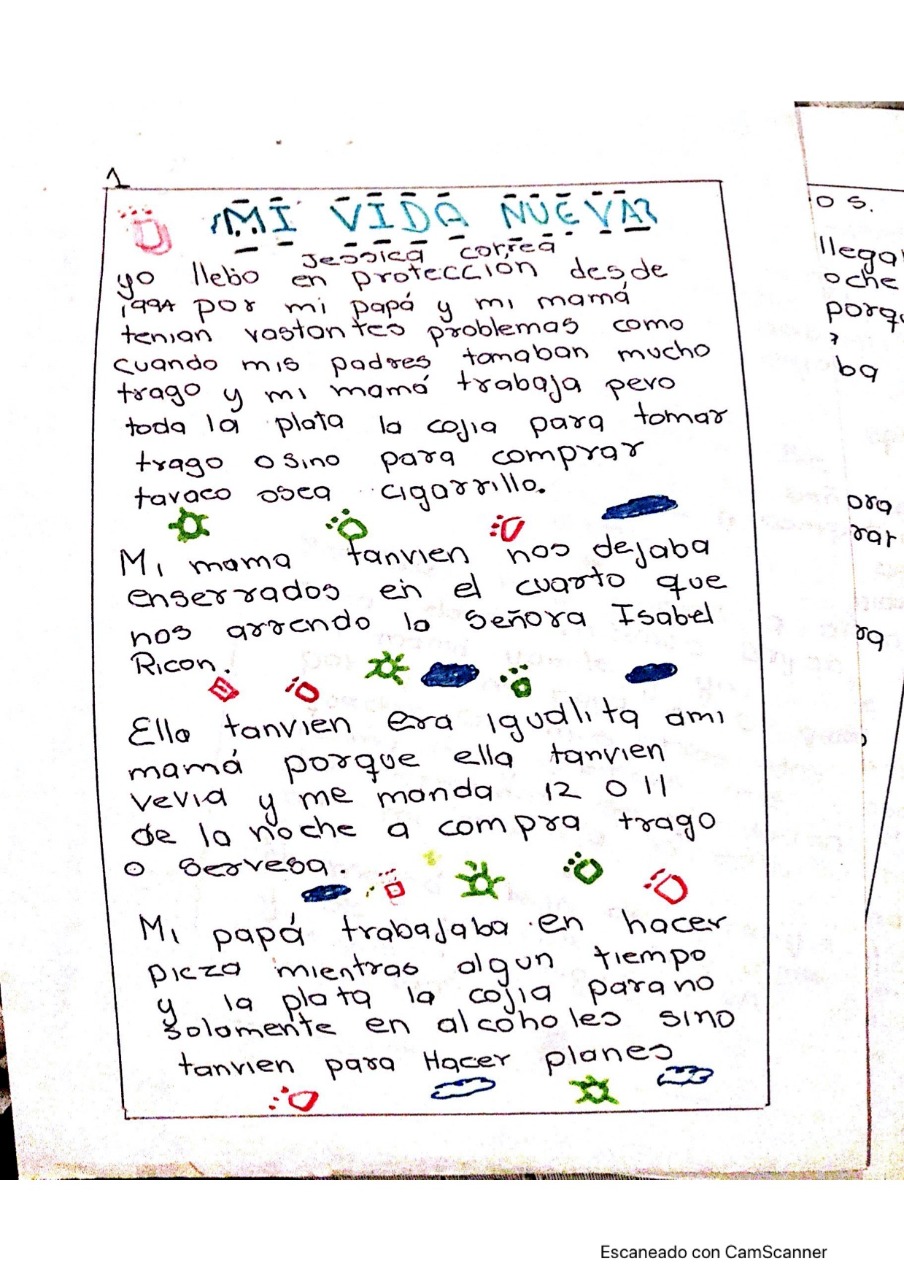 1
¡MI VIDA NUEVA?
Jessica correa
yo llebo en protección desde
1994 por mi papá y mi mamá
tenian vastantes problemas como
cuando mis padres tomaban mucho
trago y mi mamá trabaja pero
toda la plata la cojia para tomar
trago osino para comprar
tavaco osea cigarrillo.
Mi mama tanvien nos dejaba
enserrados en el cuarto que
nos arrendo la Señora Isabel
Ricon.
Ella tanvien era igualita ami
mamá porque ella tanvien
vevia y me manda 12 o 11
de la noche a compra trago
o servesa.
Mi papá trabajaba en hacer
pieza mientras algun tiempo
y la plata la cojia para no
solamente en alcoholes sino
tanvien para Hacer planes
os.
llega
oche
porq
?
ba
ora
rar
ra
Escaneado con CamScanner